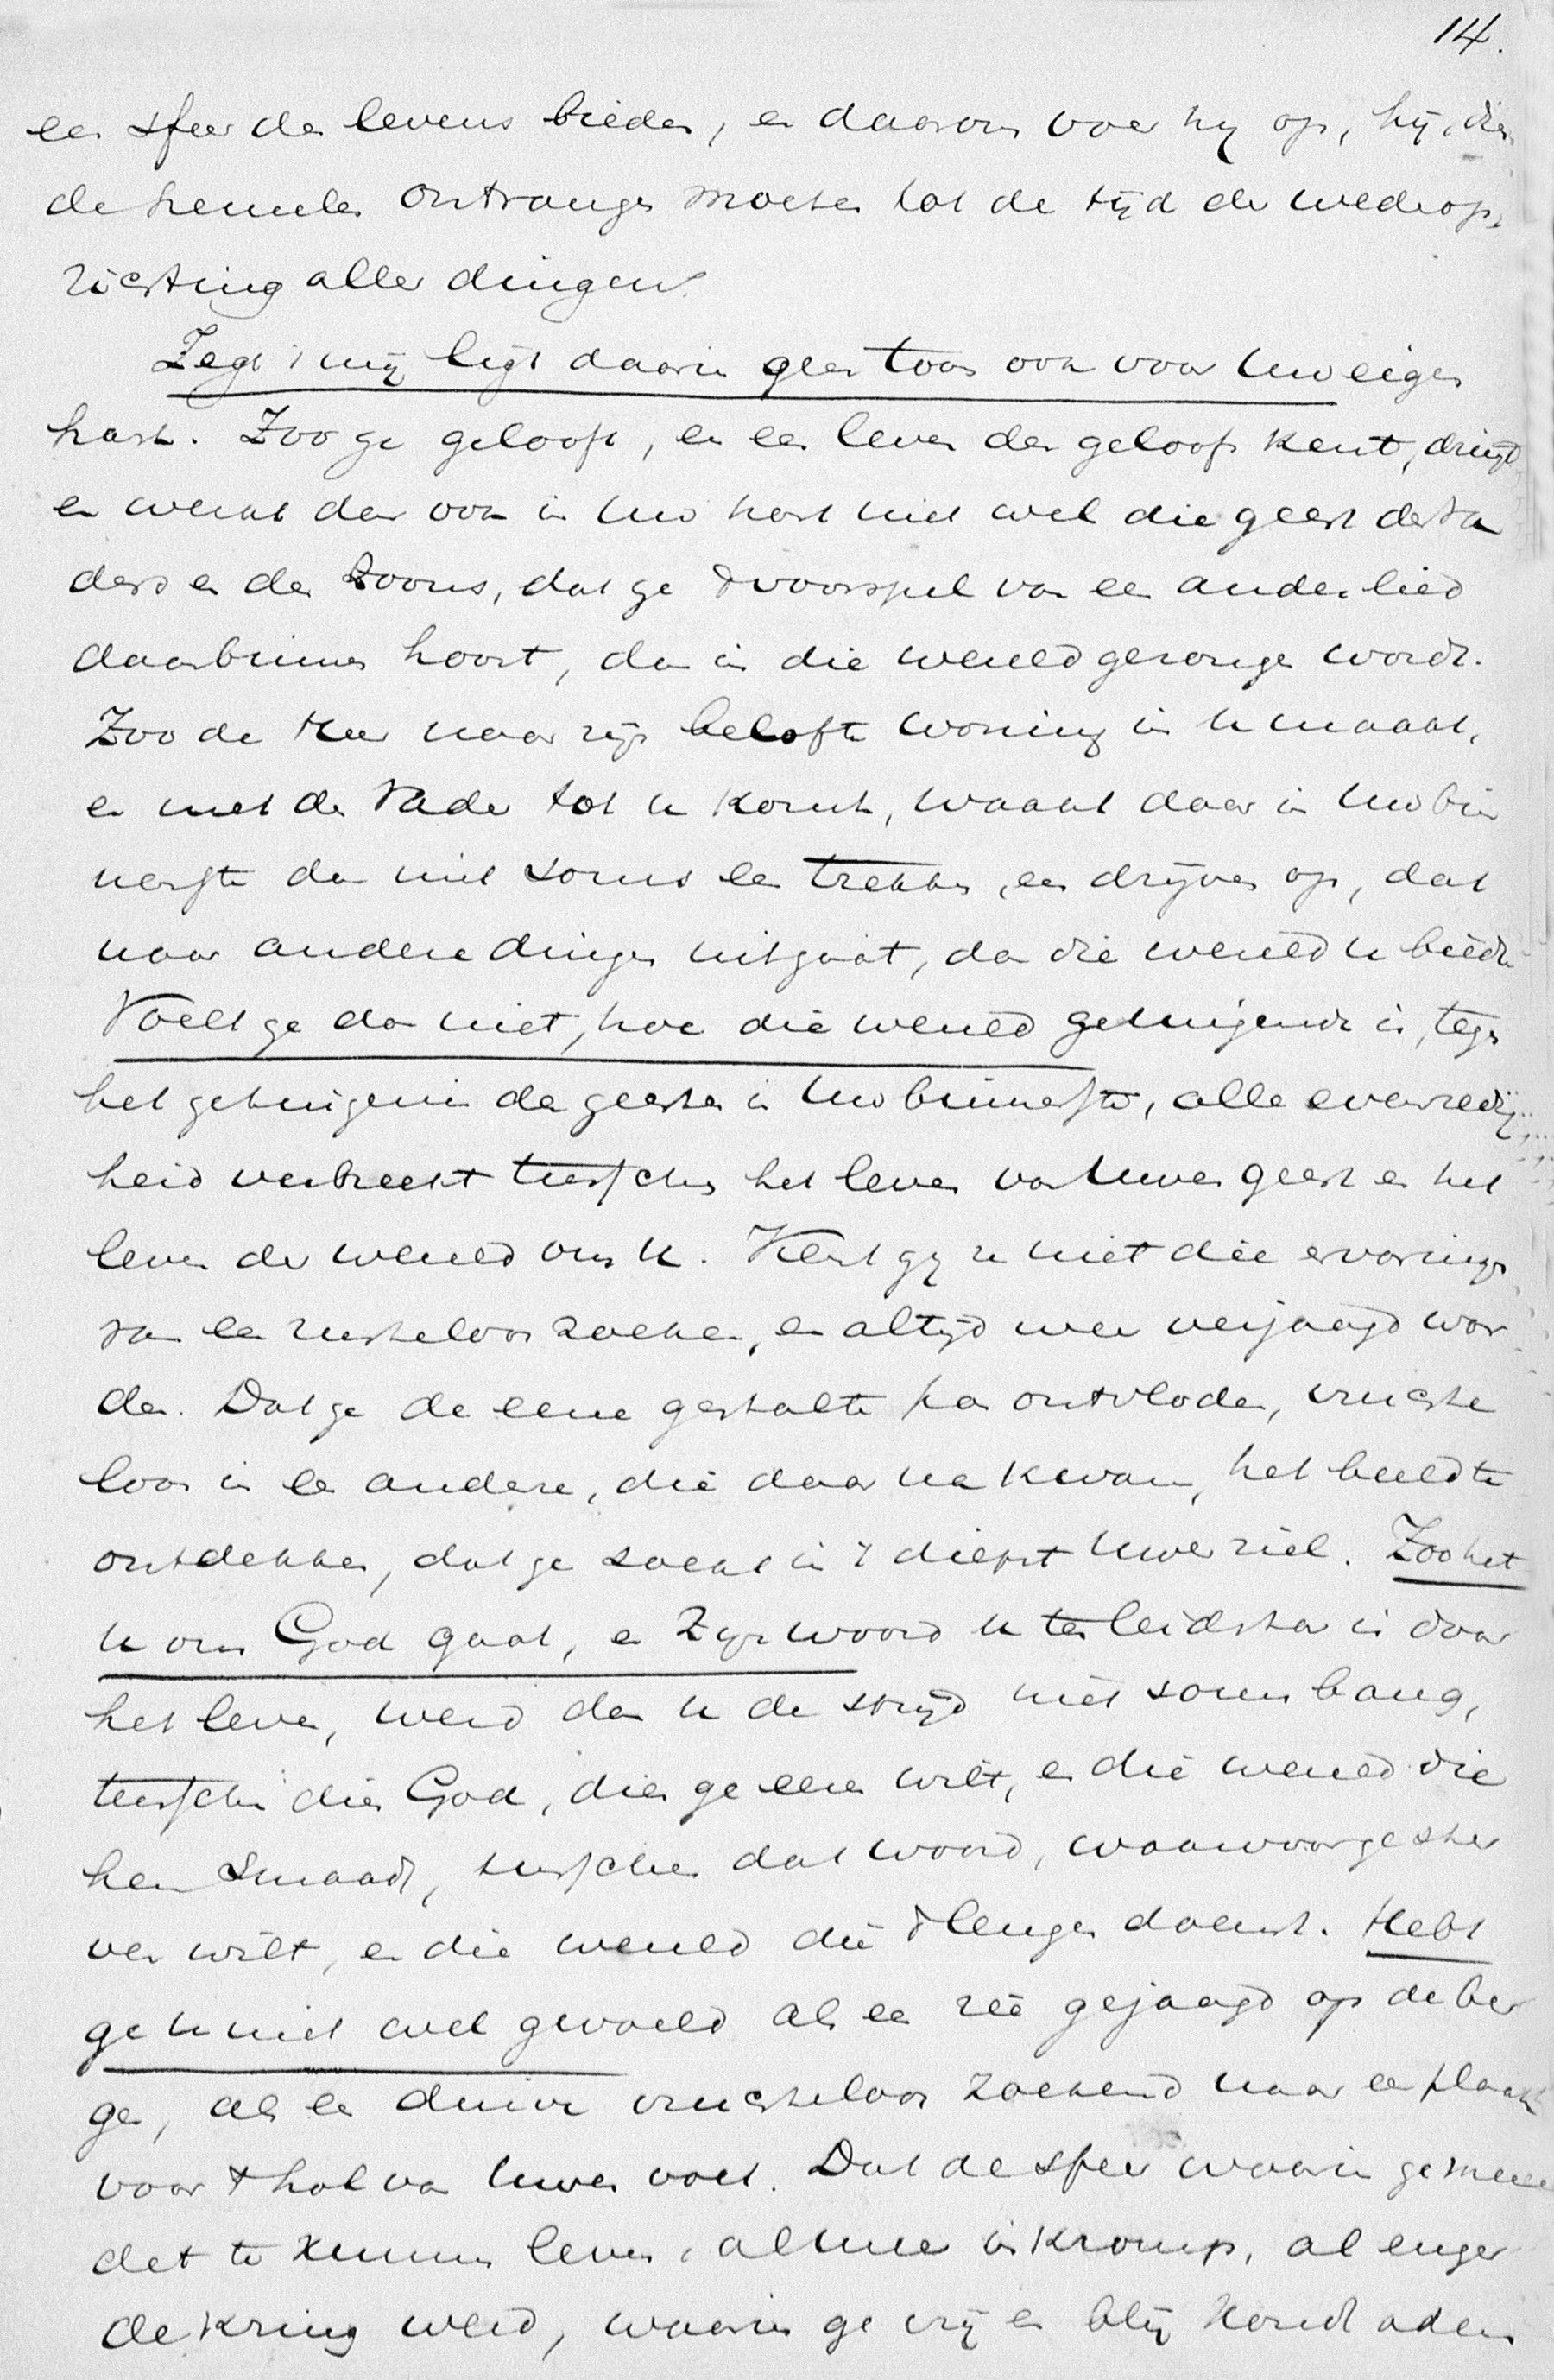 14.
een sfeer des levens bieden, en daarom voer hij op, hij, dien
de hemelen ontvangen moesten tot de tijd der wederop,
richting aller dingen.
Zegt mij ligt daarin geen troos ook voor uw eigen
hart. Zoo ge gelooft, en een leven des geloofs kent, dringt
en werkt dan ook in uw hart niet wel die geest des Va
ders en des Zoons, dat ge 't voorspel van een ander lied
daarbinnen hoort, dan in die wereld gezongen wordt.
Zoo de Heer naar zijn belofte woning in u maakt,
en met den Vader tot u komt, waakt daar in uw bin
nenste dan niet soms een trekken, een drijven op, dat
naar andere dingen uitgaat, dan die wereld u biedt
Voelt ge dan niet, hoe die wereld getuigende is, tegen
het getuigenis des geestes in uw binnenste, alle evenredig
heid verbreekt tusschen het leven van uwen geest en het
leven der wereld om u. Kent gij ze niet die ervaringen
van een rusteloos zoeken, en altijd weer verjaagd wor
den. Dat ge de eene gestalte hen ontvloden, vruchte
loos in een andere, die daarna kwam, het beeld te
ontdekken, dat ge zoekt in 't diepst uwer ziel. Zoo het
u om God gaat, en Zijn woord u ten leidstar is door
het leven, werd dan u de strijd niet soms bang,
tusschen dien God, dien ge eeren wilt, en die wereld die
hem smaadt, tusschen dat woord, waarvoor ge ster
ven wilt, en die wereld die 't leugen doemt. Hebt
ge u niet wel gevoeld als een reê gejaagd op de ber
gen, als een duive vruchteloos zoekend naar een plaats
voor 't hol van uwen voet. Dat de sfeer waarin ge meen
det te kunnen leven, al meer inkromp, al enger
de kring werd, waarin ge vrij en blij kondt adem